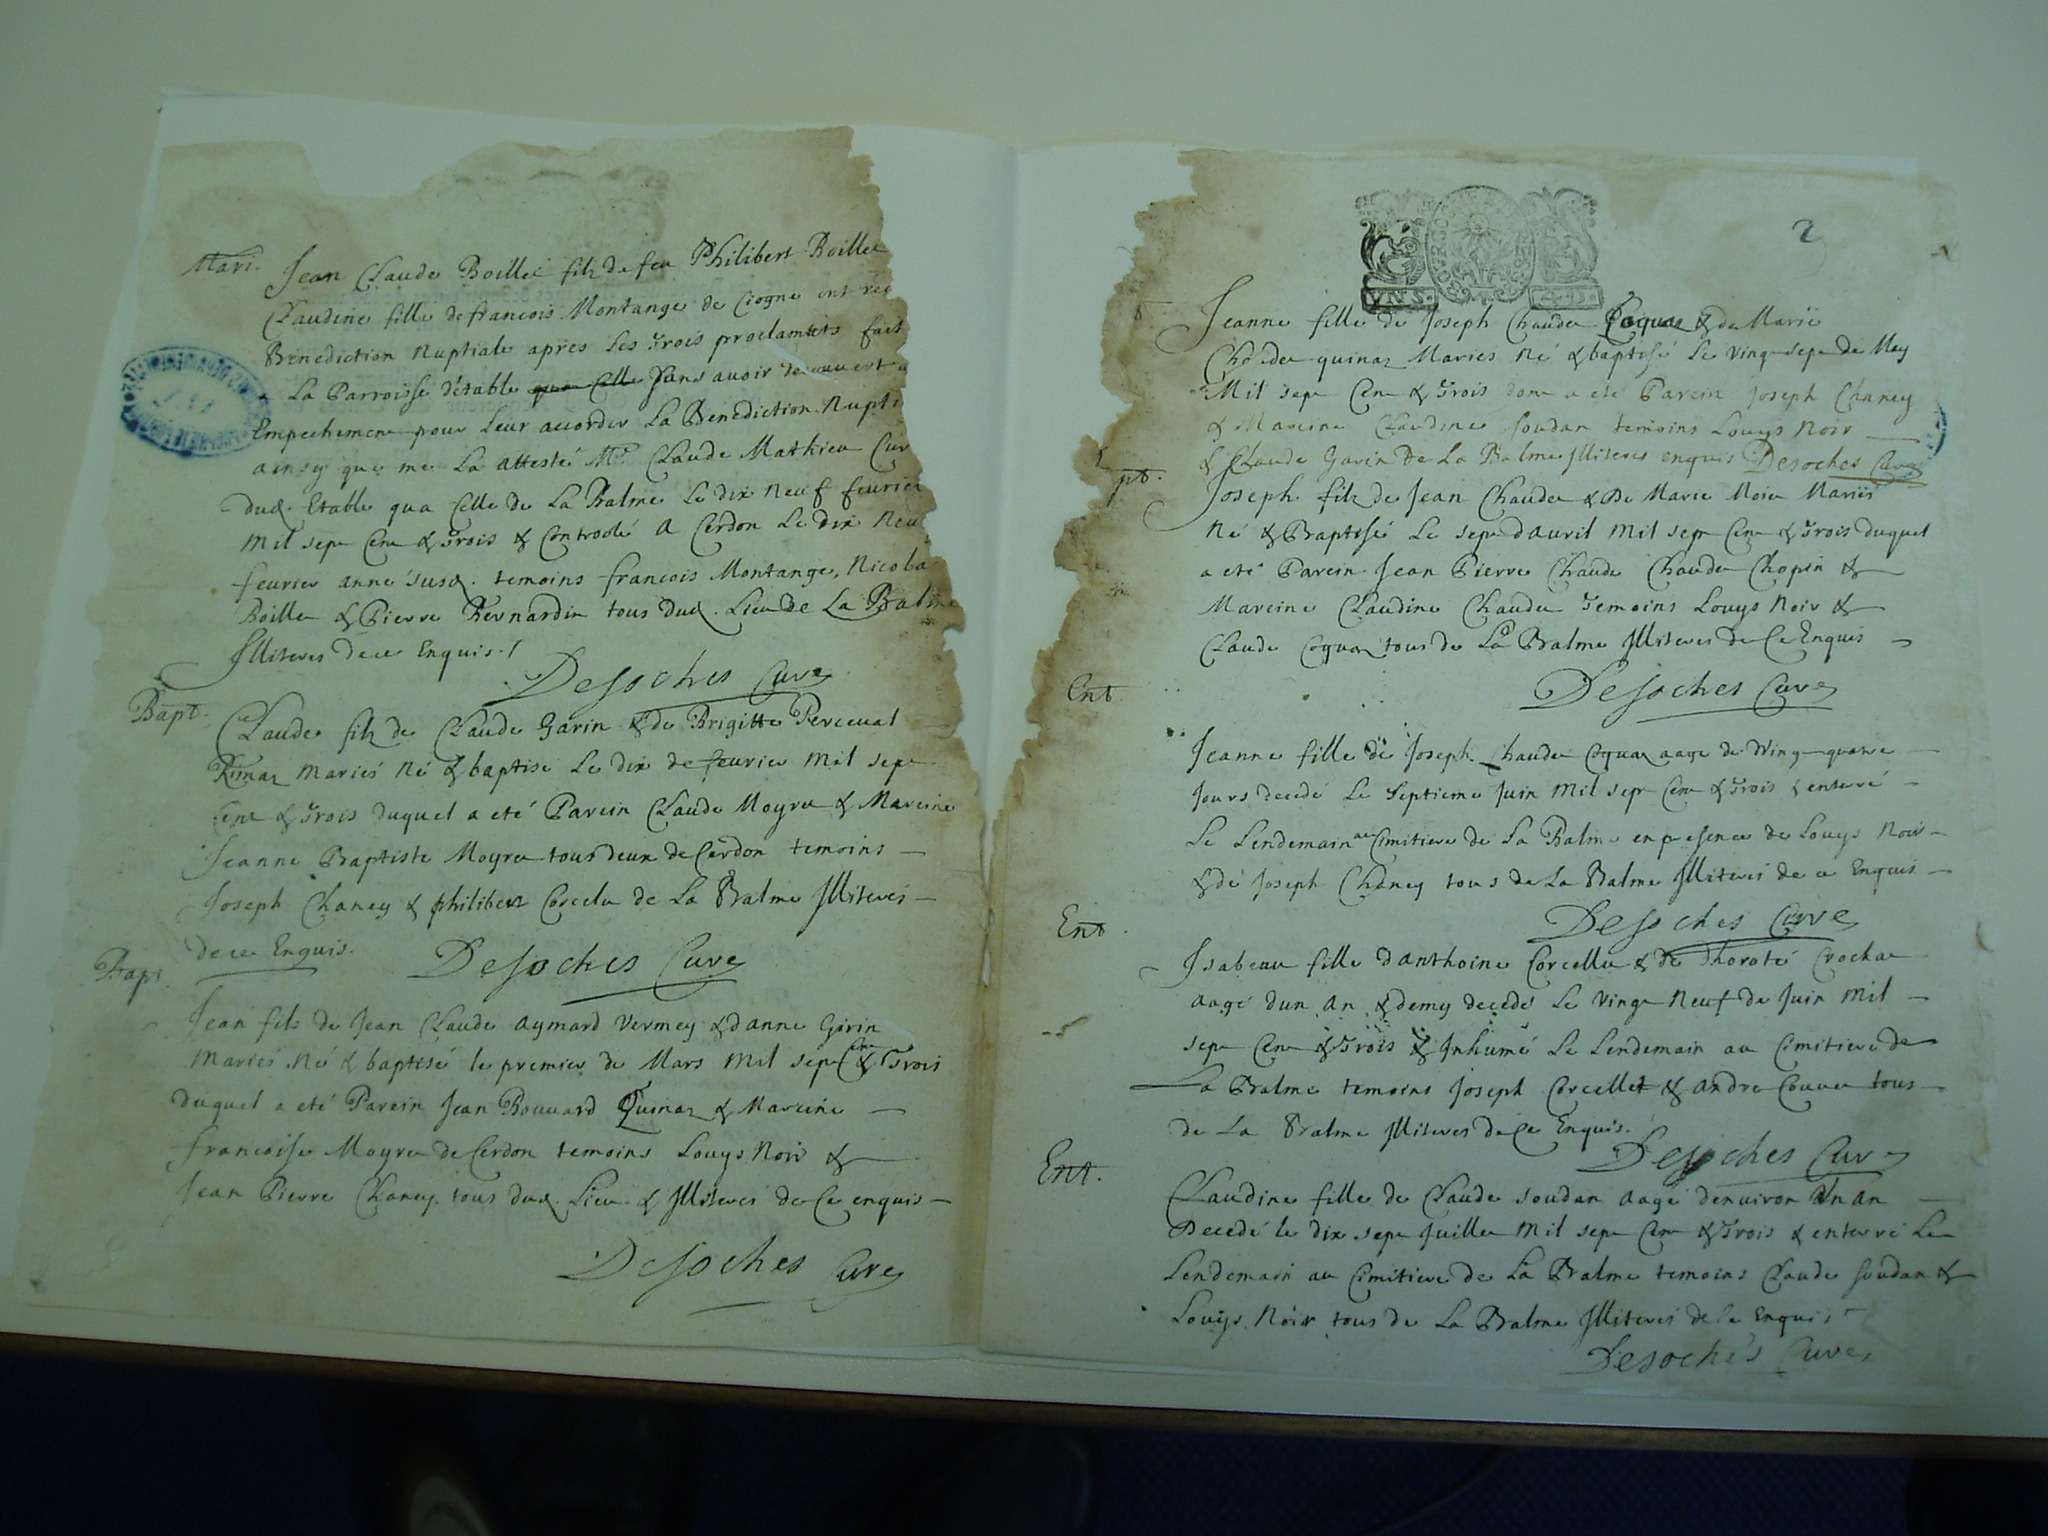 Mari.
Jean Claude Boillei filz de feu Philibert Boille
Claudine fille de francois Montange de Ciogne ont rec
Benediction Nuptiale apres les trois proclamats fait
a La Parroisse d'étable sans avoir decouvert a
Empechement pour leur accorder La Benediction Nupti
ainsy que me La attesté Mre Claude Mathieu Cur
dud. Etable qua Celle de La Balme Le dix Neuf feurier
Mil sept Cent & Trois & Controolé A Cerdon Le dix Neu
feurier anné susd. temoins francois Montange, Nicola
Boillet & Pierre Bernardin tous dud. Lieu de La Balme
Illiteres de ce Enquis./
Desoches Curé
Bapt.
Claude filz de Claude Garin & de Brigitte Perceual
Quinaz Mariés Né & baptisé Le dix de feurier Mil sept
Cent & Trois duquel a eté Parein Claude Moyret & Mareine
Jeanne Baptiste Moyret tous deux de Cerdon temoins
Joseph Chaney & philibert Corcelet de La Balme Illiterés
de ce Enquis. Desoches Curé
Bapt.
Jean fils de Jean Claude aymard Vermey & d'anne Garin
Mariés Né & baptisé le premier de Mars Mil sept Cent & Trois
duquel a eté Parein Jean Bouuard Quinaz & Mareine
francoise Moyret de Cerdon temoins Louys Noir &
Jean Pierre Chaney tous dud. Lieu & Illiterés de Ce enquis
Desoches Curé
2
VN S. 4 D.
Jeanne fille de Joseph Chaudet Coquaz & de Marie
Chaudet quinaz Mariés Né & baptisé Le Vingt sept de May
Mil sept Cent & Trois dont a eté Parein Joseph Chaney
& Mareine Claudine Soudan temoins Louys Noir
& Claude Gavin de La Balme Illiterés enquis Desoches Curé
pt.
Joseph filz de Jean Chaudet & De Marie Noir Mariés
Né & Baptisé Le sept d'auril Mil sept Cent & Trois duquel
a eté Parein Jean Pierre Chaude Chaudet Chopin &
Mareine Claudine Chaudet Temoins Louys Noir &
Claude Coquaz tous de La Balme Illiteres de Ce Enquis
Desoches Curé
Ent.
Jeanne fille de Joseph Chaudet Coquaz aagé de Vingt quatre
Jours decedé Le Septieme Juin Mil sept Cent & Trois & enterré
Le Lendemain au Cimitiere de La Balme en presence de Louys Noir
& de Joseph Chaney tous de La Balme Illiterés de ce Enquis
Desoches Curé
Ent.
Isabeau fille d'anthoine Corcellet & de Thoroté Crochat
aagé d'un an & demy decedé Le Vingt Neuf de Juin Mil
sept Cent & Trois & Inhumé Le Lendemain au Cimitiere de
La Balme temoins Joseph Corcellet & andre Couuet tous
de La Balme Illiteres de Ce Enquis.
Desoches Curé
Ent.
Claudine fille de Claude Soudan aagé d'enuiron Un an
Decedé le dix sept Juillet Mil sept Cent & Trois & enterré Le
Lendemain au Cimitiere de La Balme temoins Claude Soudan &
Louys Noir tous de La Balme Illiterés de Ce Enquis
Desochés Curé